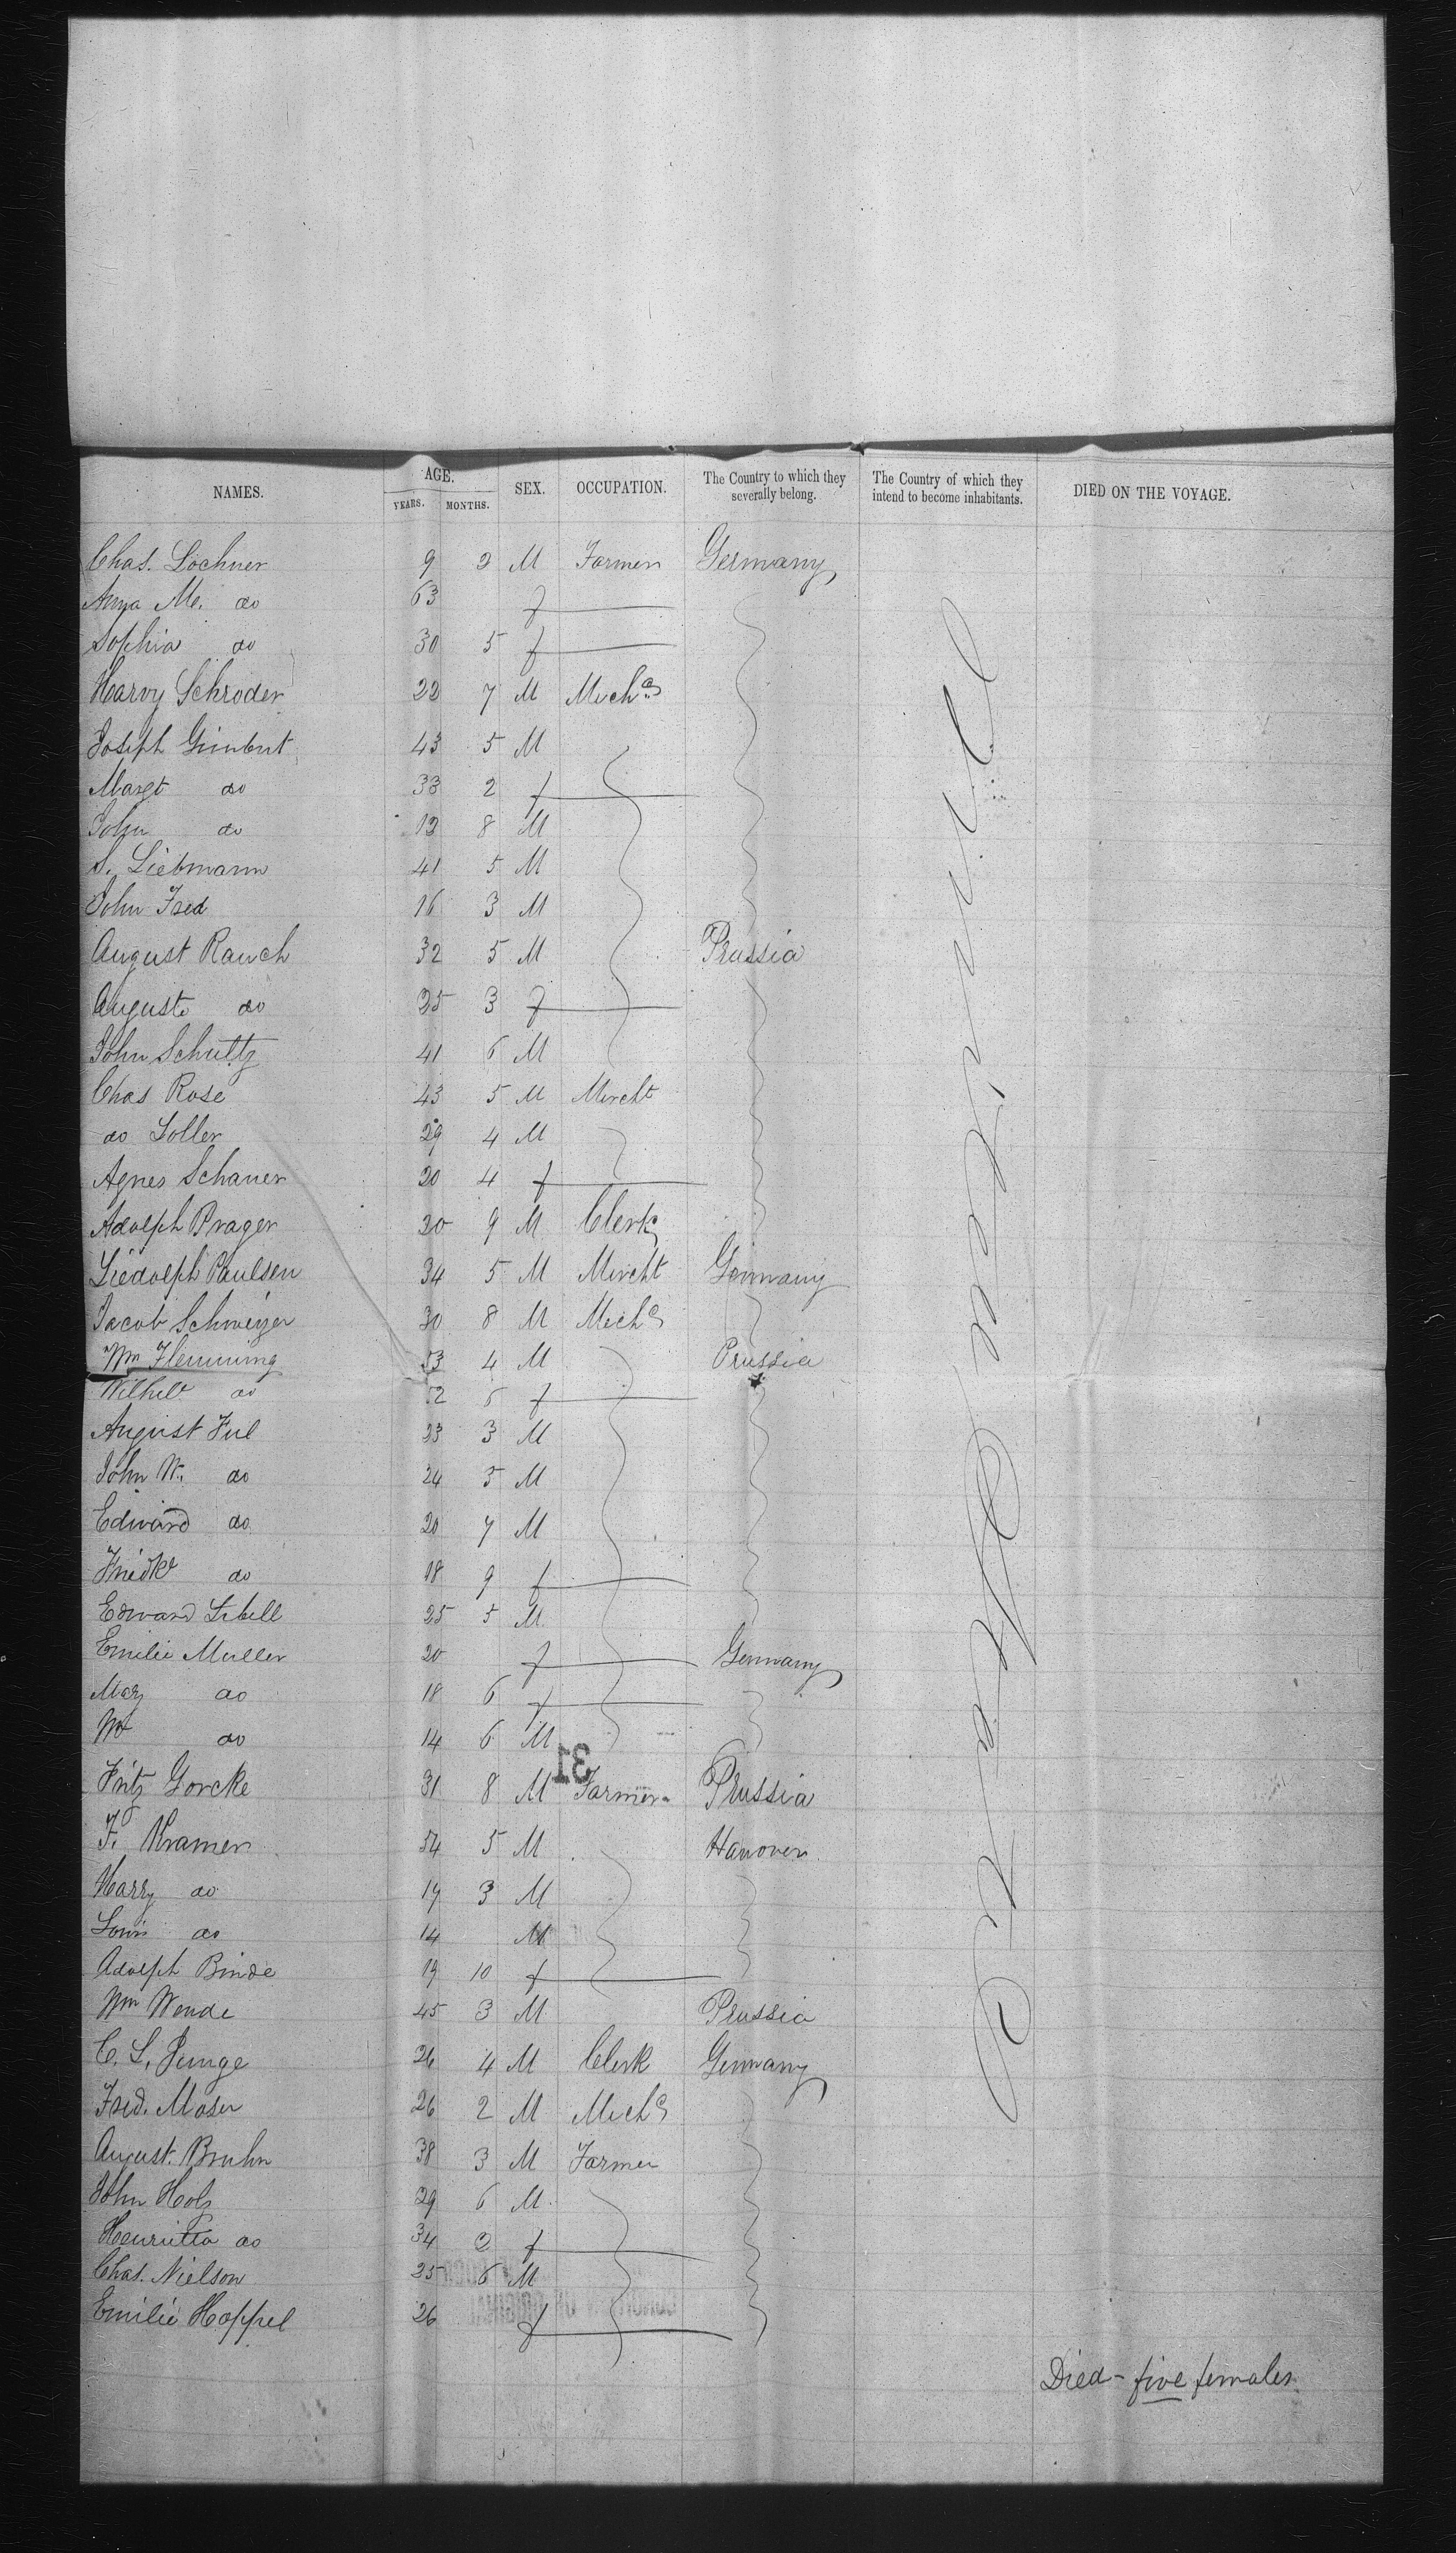 NAMES. AGE. YEARS. MONTHS. SEX. OCCUPATION. The Country to which they severally belong. The Country of which they intend to become inhabitants. DIED ON THE VOYAGE.
Chas. Lochner 9 2 M Farmer Germany
Anna M. do 63 f
Sophia do 30 5 f
Harvy Schroder 22 7 M Mechc
Joseph Gimbert 43 5 M
Margt do 33 2 f
John do 12 8 M
S. Liebmann 41 5 M
John Fred 16 3 M
August Rauch 32 5 M Prussia
Auguste do 25 3 f
John Schultz 41 6 M
Chas Rose 43 5 M Mercht
do Loller 29 4 M
Agnes Schauer 20 4 f
Adolph Prager 20 9 M Clerk
Liedolph Paulsen 34 5 M Mercht Germany
Jacob Schweizer 30 8 M Mechc
Wm Flemming 53 4 M Prussia
Wilhe do 52 6 f
August Ful 23 3 M
John W. do 24 5 M
Edward do 20 7 M
Friedke do 18 9 f
Edward Libell 25 5 M
Emilie Muller 20 f Germany
Mary do 18 6 f
Wm do 14 6 M
31
Fritz Gorcke 31 8 M Farmer Prussia
F. Kramer 54 5 M Hanover
Harry do 17 3 M
Louis do 14 M
Adolph Binde 19 10 f
Wm Wende 45 3 M Prussia
C. L. Junge 26 4 M Clerk Germany
Fred. Moser 26 2 M Mechc
August Bruhn 38 3 M Farmer
John Holz 29 6 M
Henrietta do 34 2 f
Chas. Nielson 25 6 M
Emilie Hoppel 26 f
United States of America
Died - five females.